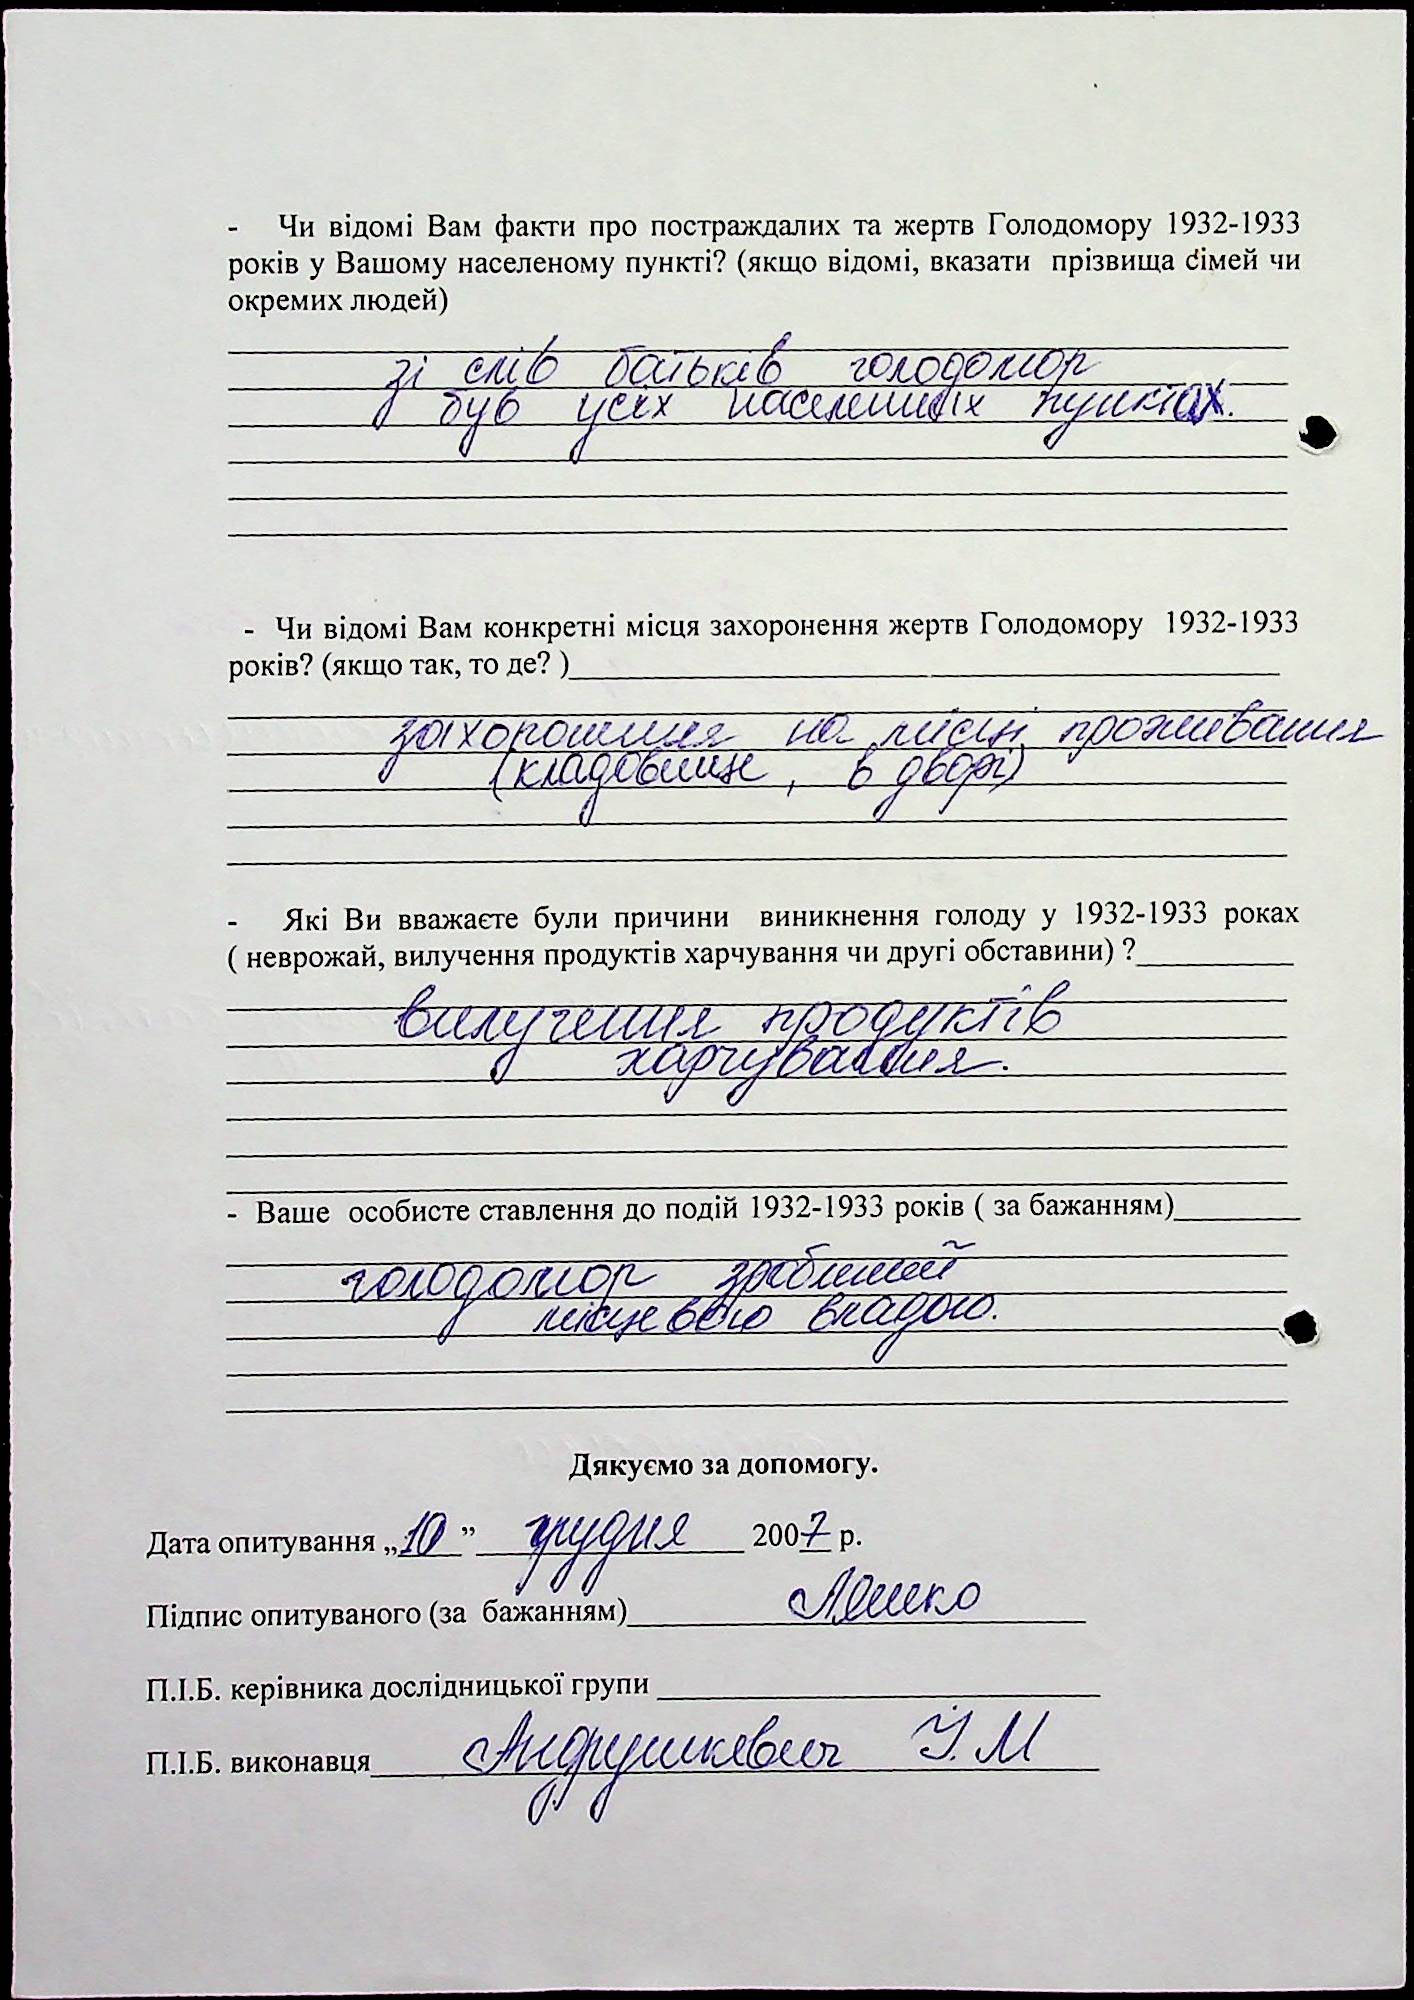 - Чи відомі Вам факти про постраждалих та жертв Голодомору 1932-1933
років у Вашому населеному пункті? (якщо відомі, вказати прізвища сімей чи
окремих людей)
зі слів батьків голодомор
був усіх населенних пунктах.
- Чи відомі Вам конкретні місця захоронення жертв Голодомору 1932-1933
років? (якщо так, то де? )
захоронення на місці проживання
(кладовище, в дворі)
- Які Ви вважаєте були причини виникнення голоду у 1932-1933 роках
( неврожай, вилучення продуктів харчування чи другі обставини) ?
вилучення продуктів
харчування.
- Ваше особисте ставлення до подій 1932-1933 років ( за бажанням)
голодомор зроблений
місцевою владою.
Дякуємо за допомогу.
Дата опитування „10” грудня 2007 р.
Підпис опитуваного (за бажанням)
П.І.Б. керівника дослідницької групи
П.І.Б. виконавця Андрушкевич І.М